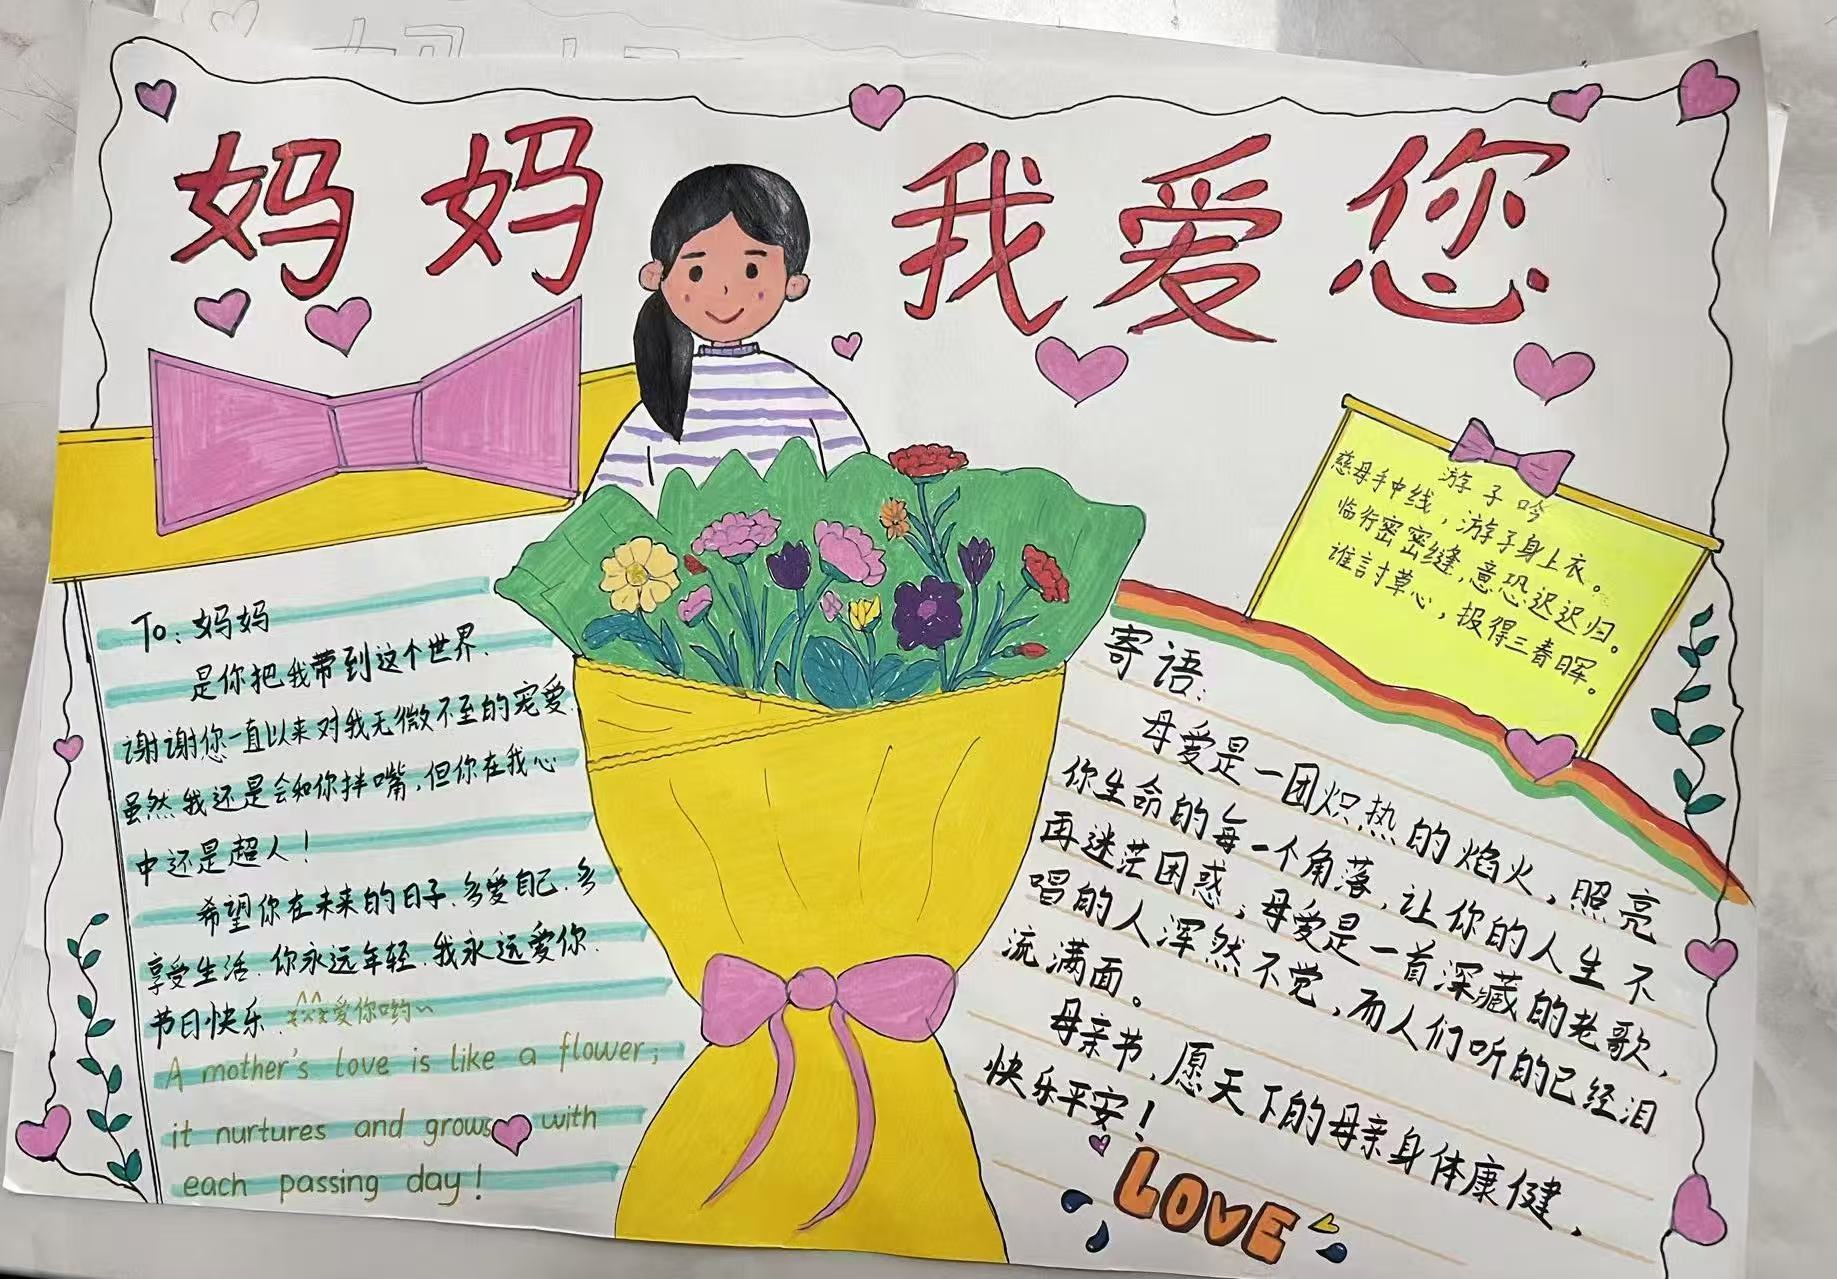 妈妈 我爱您
To：妈妈
是你把我带到这个世界.
谢谢您一直以来对我无微不至的宠爱.
虽然我还是会和你拌嘴，但你在我心
中还是超人！
希望你在未来的日子.多爱自己.多
享受生活.你永远年轻.我永远爱你.
节日快乐.爱你哟~
A mother's love is like a flower;
it nurtures and grows with
each passing day!
游子吟
慈母手中线，游子身上衣。
临行密密缝，意恐迟迟归。
谁言寸草心，报得三春晖。
寄语：
母爱是一团炽热的焰火，照亮
你生命的每一个角落，让你的人生不
再迷茫困惑；母爱是一首深藏的老歌，
唱的人浑然不觉，而人们听的已经泪
流满面。
母亲节，愿天下的母亲身体康健，
快乐平安！
LOVE